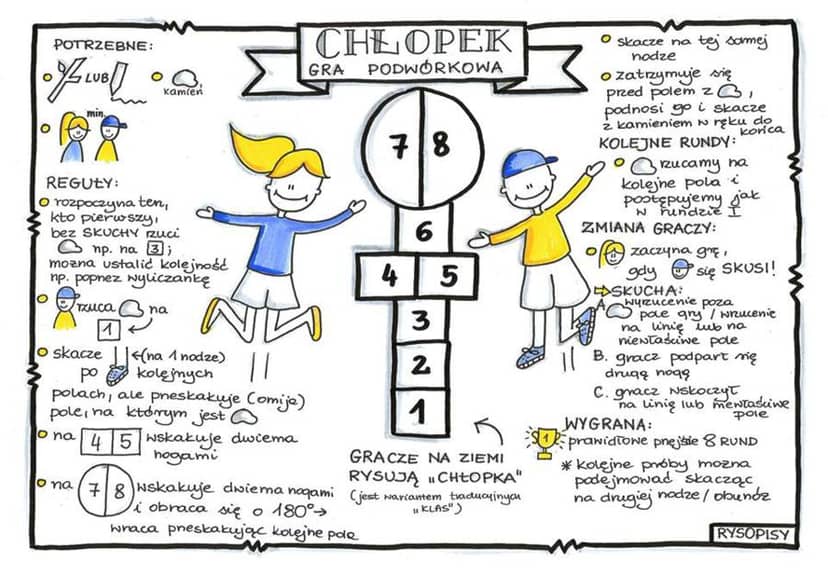 CHŁOPEK
GRA PODWÓRKOWA
POTRZEBNE:
LUB
kamień
min.
REGUŁY:
rozpoczyna ten,
kto pierwszy,
bez SKUCHY rzuci
np. na 3;
można ustalić kolejność
np. poprzez wyliczankę
rzuca na
1
skacze (na 1 nodze)
po kolejnych
polach, ale przeskakuje (omija)
pole, na którym jest
na 4 5 wskakuje dwiema
nogami
na 7 8 wskakuje dwiema nogami
i obraca się o 180°→
wraca przeskakując kolejne pole
7 8
6
4 5
3
2
1
GRACZE NA ZIEMI
RYSUJĄ „CHŁOPKA"
(jest wariantem tradycyjnych
„KLAS")
skacze na tej samej
nodze
zatrzymuje się
przed polem z ,
podnosi go i skacze
z kamieniem w ręku do
końca
KOLEJNE RUNDY:
rzucamy na
kolejne pola i
postępujemy jak
w rundzie I
ZMIANA GRACZY:
zaczyna grę,
gdy się SKUSI!
⇨SKUCHA:
A wyrzucenie poza
pole gry / wrzucenie
na linię lub na
niewłaściwe pole
B. gracz podparł się
drugą nogą
C. gracz wskoczył
na linię lub niewłaściwe
pole
WYGRANA:
1 prawidłowe przejście 8 RUND
* kolejne próby można
podejmować skacząc
na drugiej nodze / obunóż
RYSOPISY